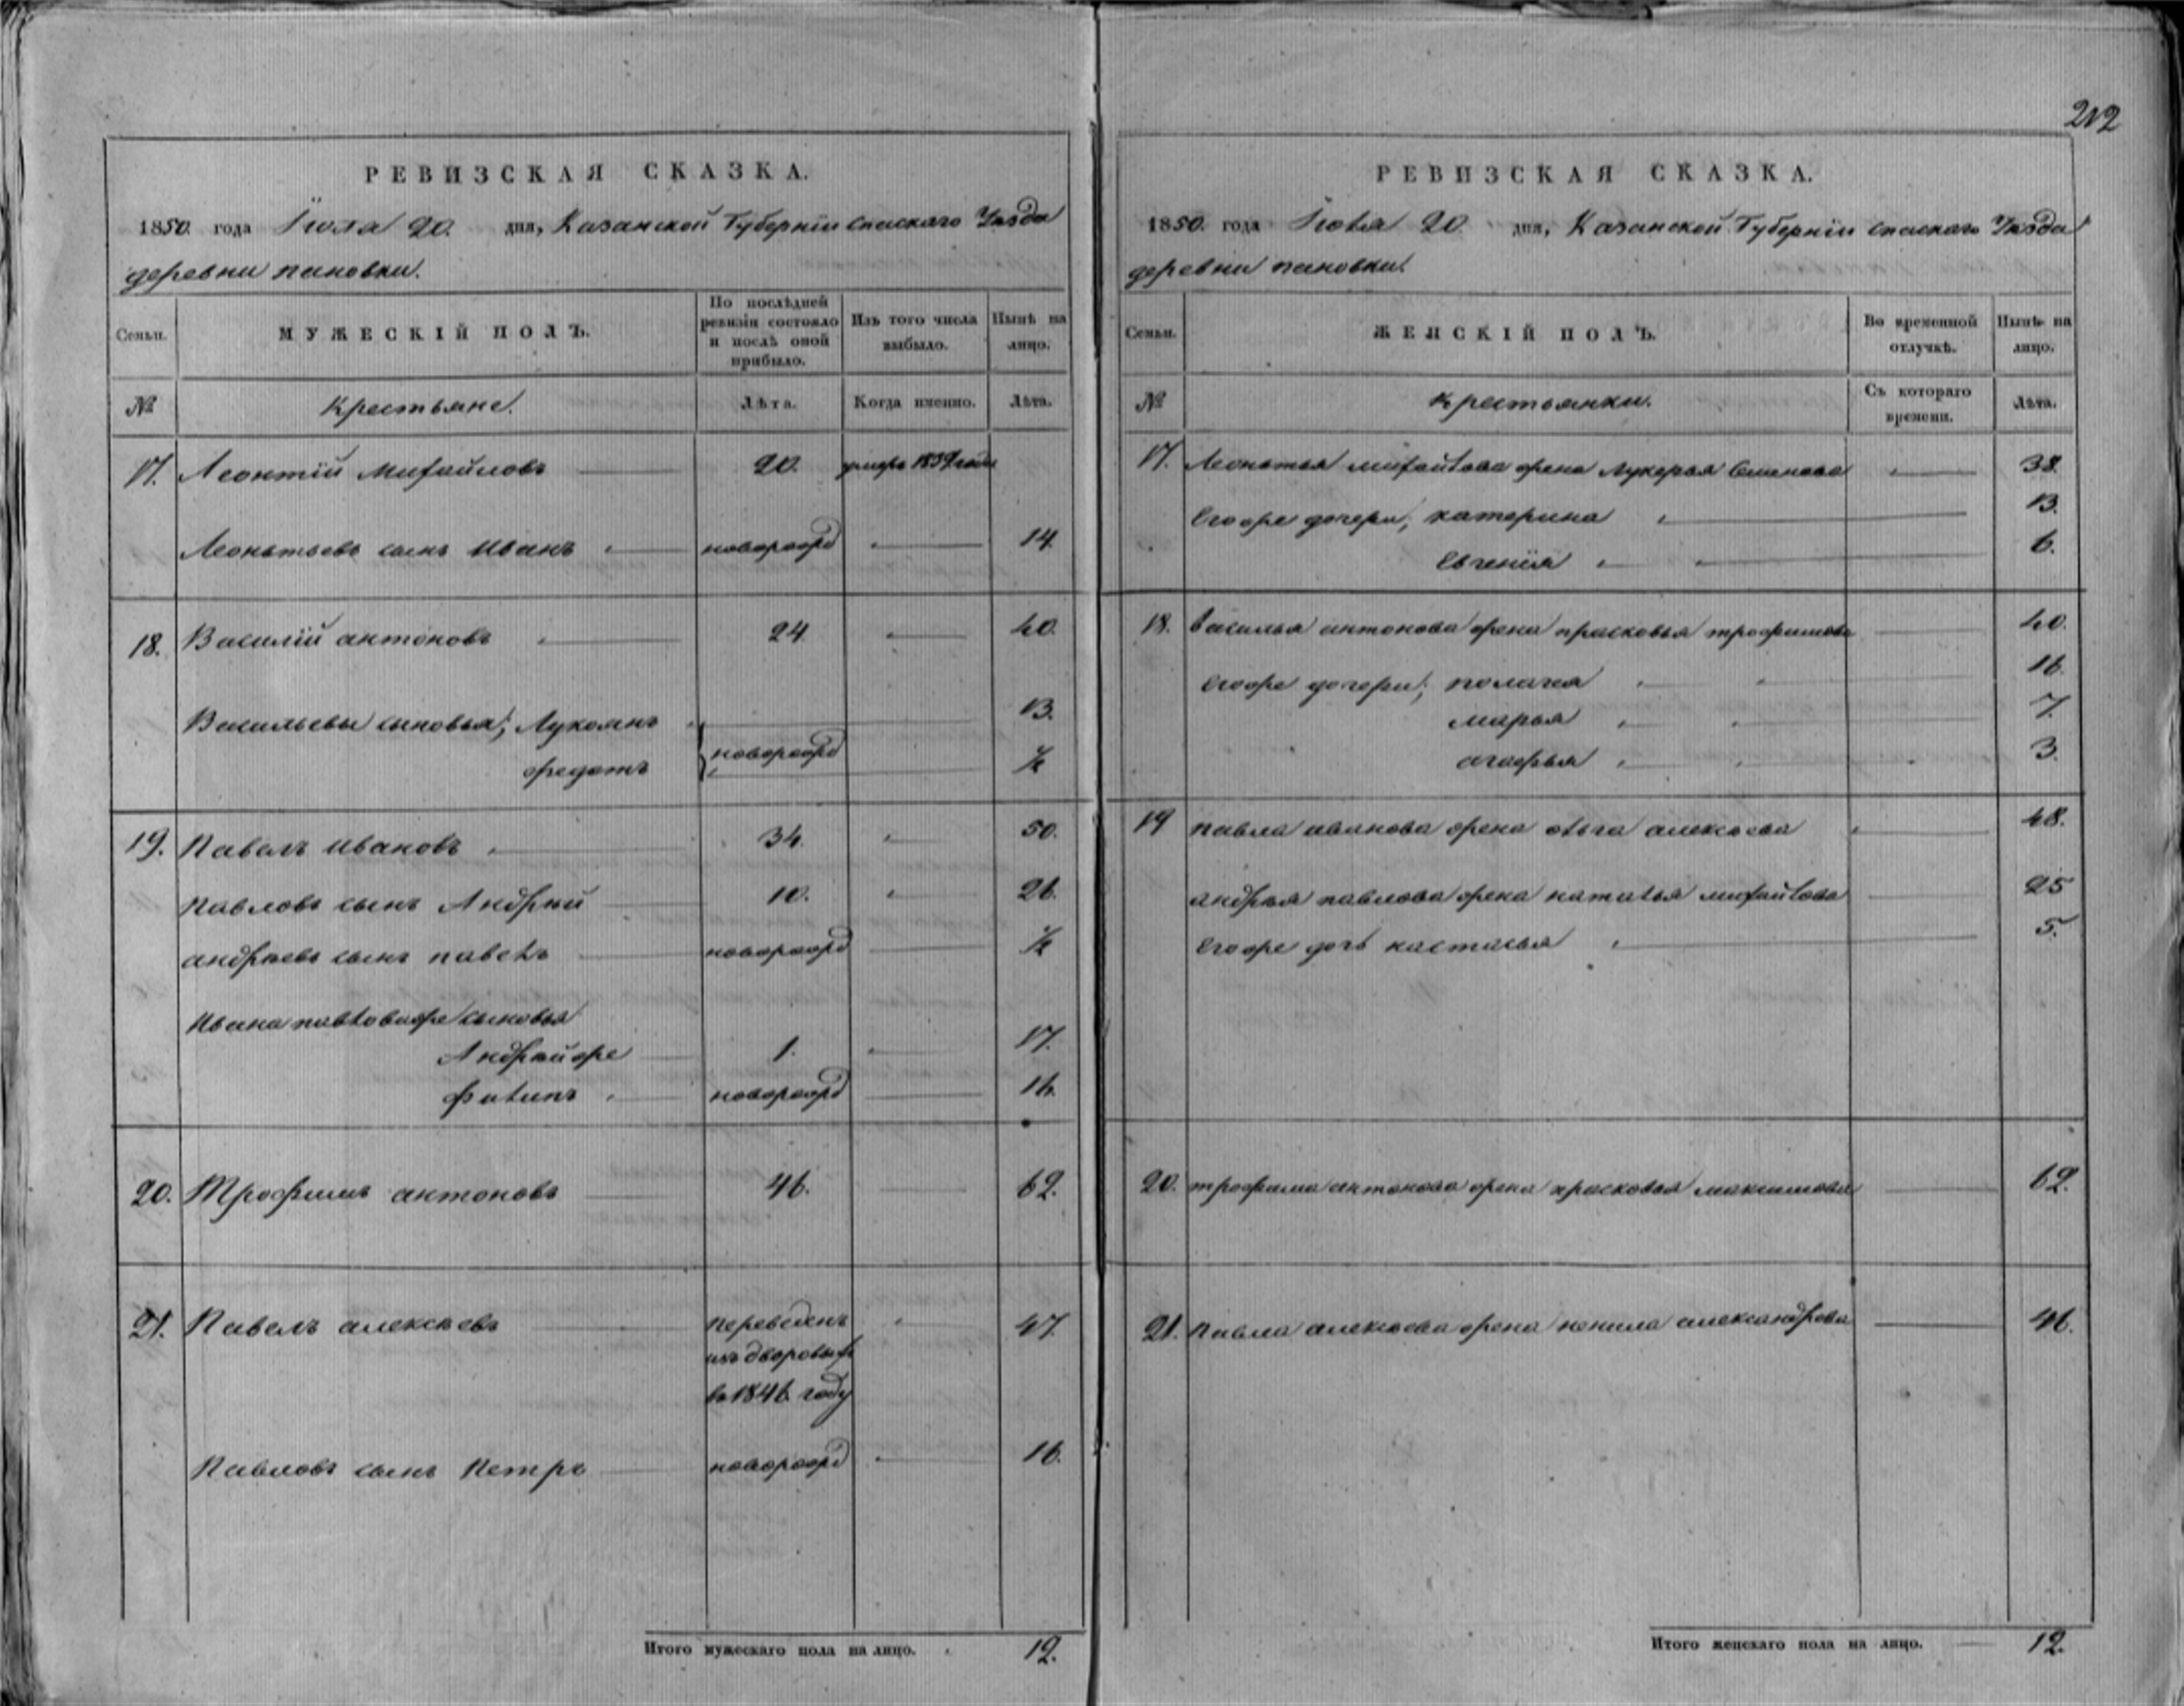 212
РЕВИЗСКАЯ СКАЗКА.
1850. года Іюля 20. дня, Казанской Губерніи спаскаго Уѣзда
деревни пановки.
Семьи.
МУЖЕСКІЙ ПОЛЪ.
По послѣдней ревизіи состояло и послѣ оной прибыло.
Изъ того числа выбыло.
Нынѣ на лицо.
№
Крестьяне.
Лѣта.
Когда именно.
Лѣта.
17. Леонтій Михайловъ 20. умеръ 1839 года
Леонтьевъ сынъ Иванъ новорожд 14
18. Василій антоновъ 24 40.
Васильевы сыновья; Лукоянъ 13.
новорожд
федотъ ½
19. Павелъ Ивановъ 34. 50.
Павловъ сынъ Андрѣй 10. 26.
андрѣевъ сынъ павелъ новорожд ½
Ивана павловаже сыновья
Андрѣйже 1. 17.
филипъ новорожд 16.
20. Трофимъ антоновъ 46. 62.
21. Павелъ алексѣевъ переведенъ 47.
изъ дворовыхъ
въ 1846 году
Павловъ сынъ Петръ новорожд 16.
Итого мужескаго пола на лицо. 12.
РЕВИЗСКАЯ СКАЗКА.
1850. года Іюля 20 дня, Казанской Губерніи спаскаго Уѣзда
деревни пановки.
Семьи.
ЖЕНСКІЙ ПОЛЪ.
Во временной отлучкѣ.
Нынѣ на лицо.
№
Крестьянки.
Съ котораго времени.
Лѣта.
17. Леонтья михайлова жена Лукерья Семенова 38.
Егоже дочери; катерина 13.
Евгенія 6.
18. Василья антонова жена прасковья трофимова 40.
Егоже дочери; полагея 16.
марья 7.
агафья 3.
19 павла иванова жена ольга алексѣева 48.
андрѣя павлова жена наталья михайлова 25
Егоже дочь настасья 5.
20. трофима антонова жена прасковья максимова 62.
21. павла алексѣева жена ненила александрова 46.
Итого женскаго пола на лицо. 12.